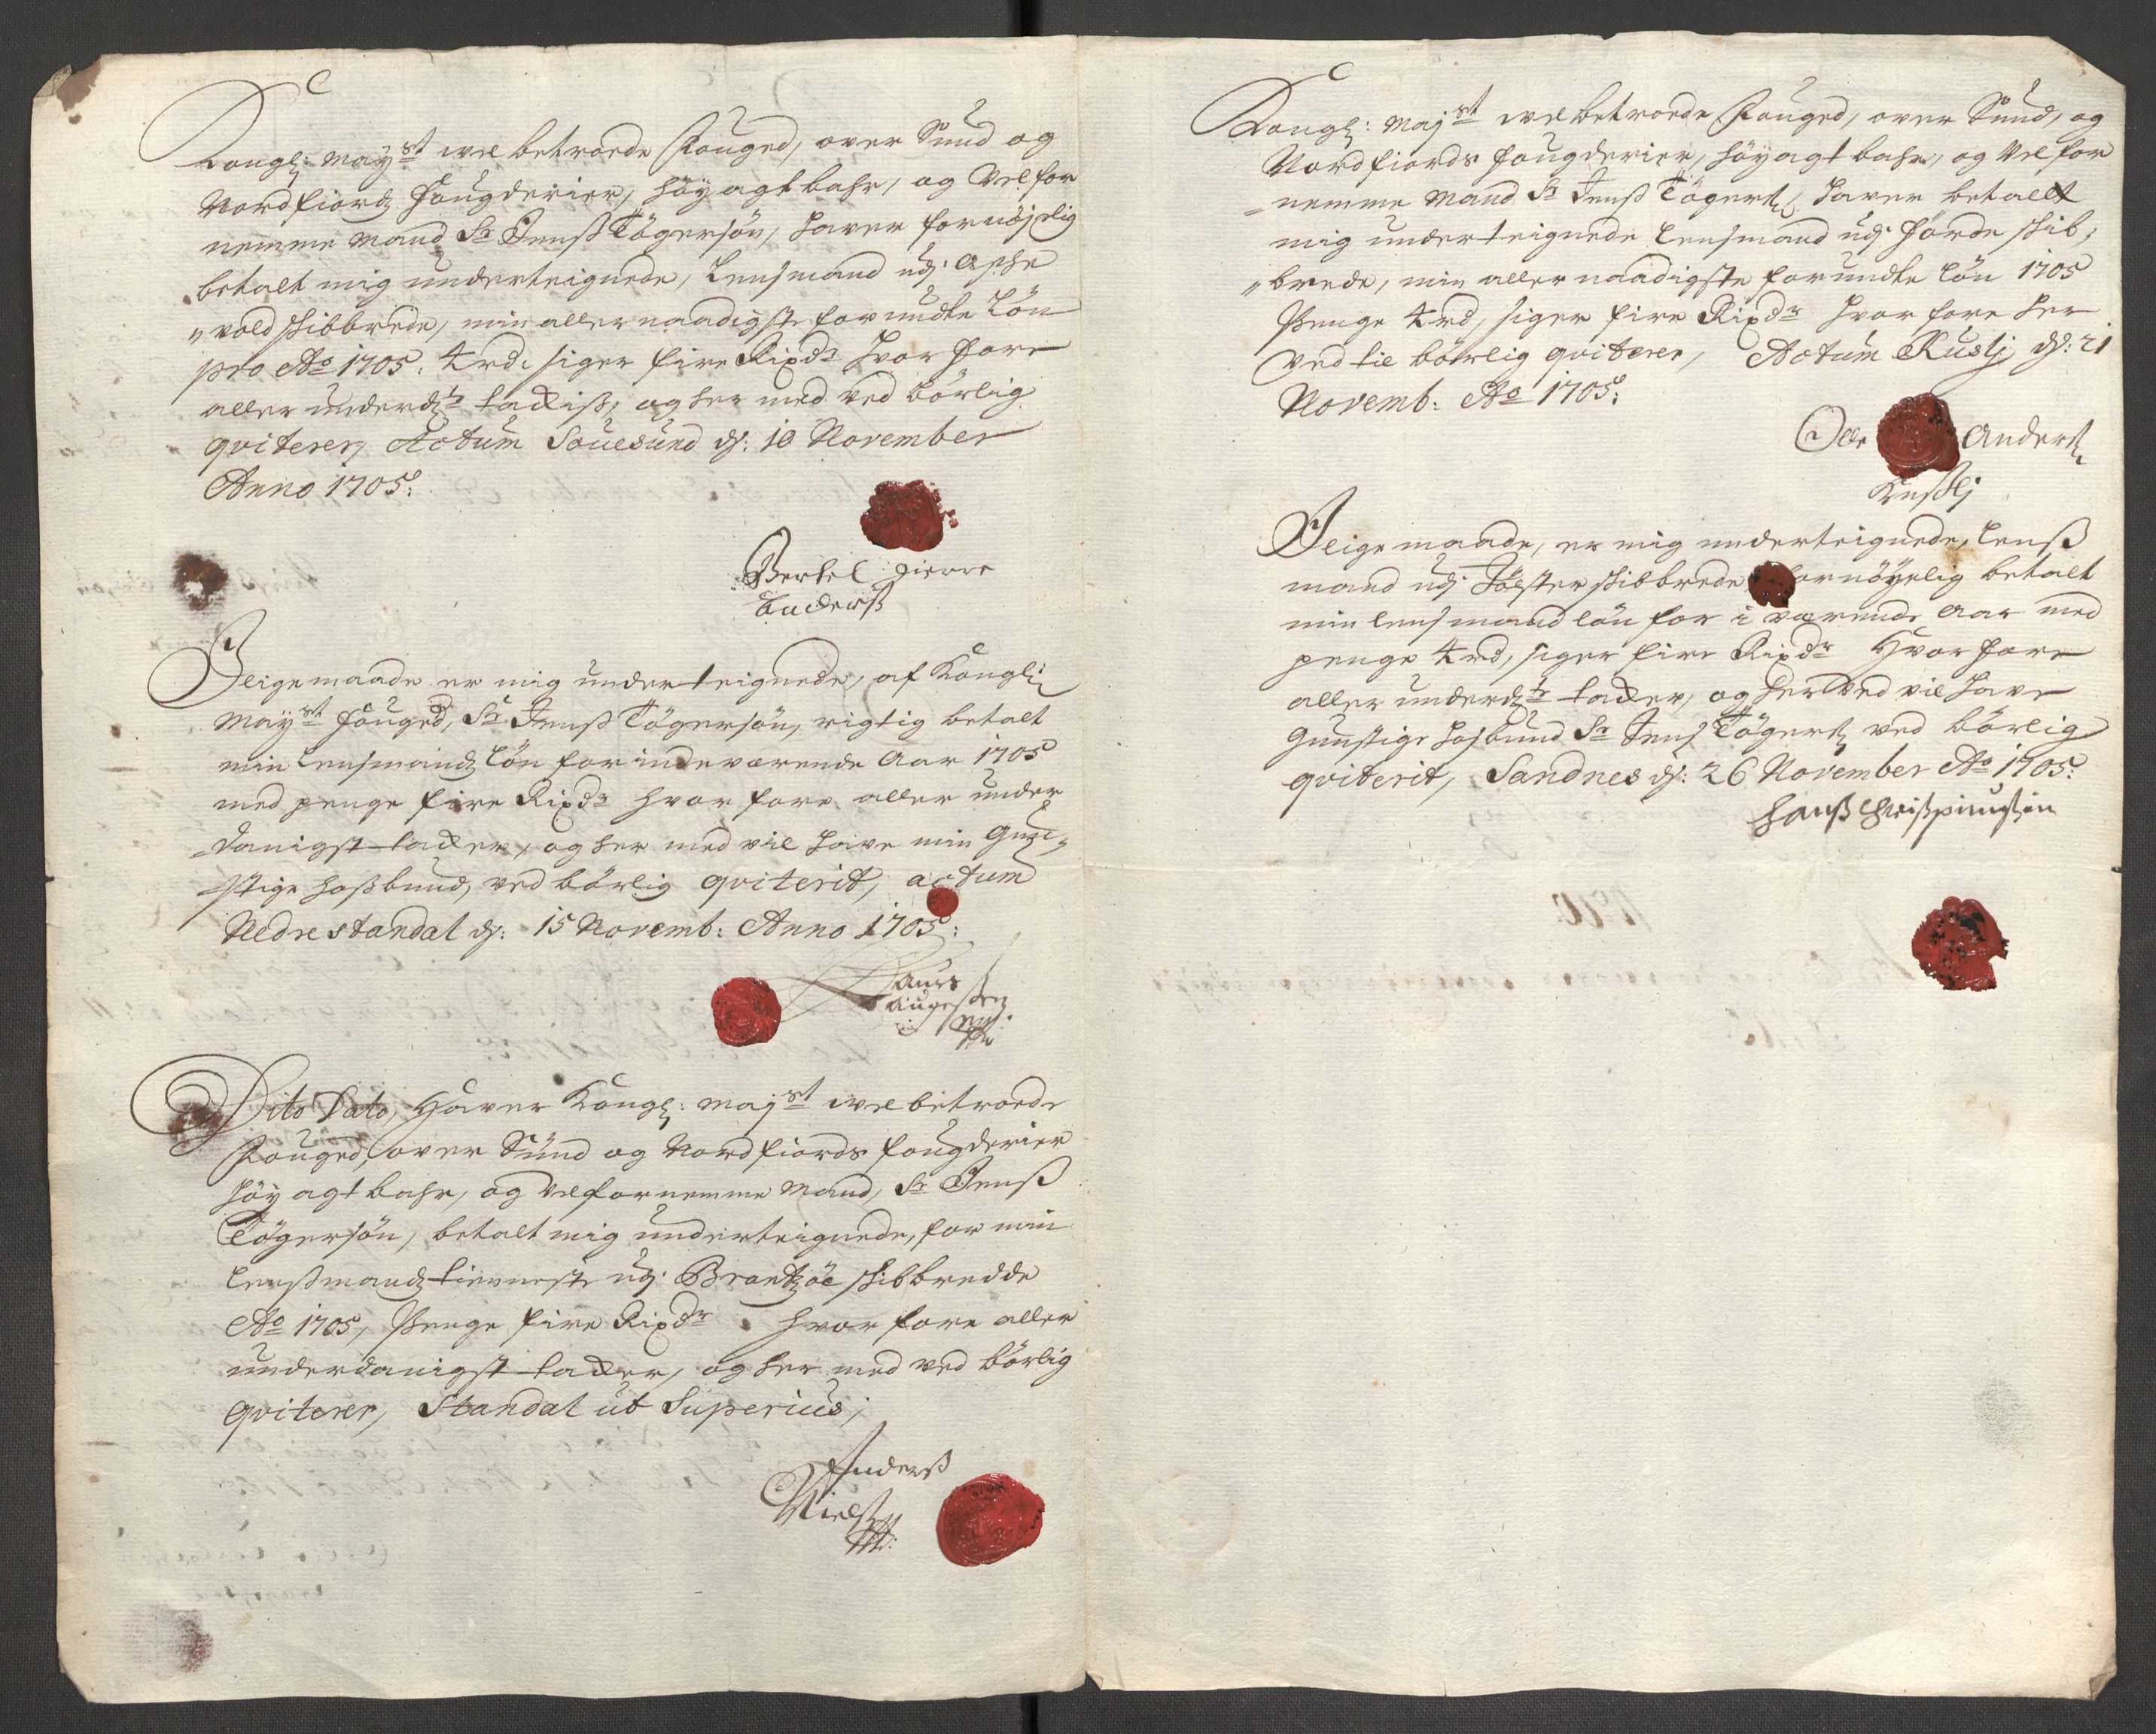 Kongl: Mayst welbetroede Fouged, over Sund og
Nordfiordz fougderier, höyagtbahr, og Velfor
nemme Mand Sr Jenß Tögersön, haver fornøjelig
betalt mig underteignede, Lensmand udj Aske
vold skibbrede, min allernaadigste forundte Lön
pro Ao 1705. 4rd. siger fire Rixdr hvor fore
allerunderdst tackiß, og her med ved börlig
qviterer, Actum Souesund d: 10 November
Anno 1705:
Bertel
Anderß
J lige maade er mig underteignede, af Kongl:
Mayst fouged, Sr Jenß Tögersön, rigtig betalt
min Lensmandz Lön for indeværende Aar 1705
med penge fire Rixdr hvor fore aller under
danigst tacker, og her med vil have min gun
stige Hoßbund, ved börlig qviterit, actum
Nedrestandal d: 15 Novemb: Anno 1705:
Laurs
Augesten
Dito Dato, Haver Kongl: Mayst welbetroede
Fouged, over Sund og Nordfiords fougderier
höyagtbahr, og velfornemme Mand, Sr Jenß
Tögersön, betalt mig underteignede, for min
Lenßmandz tienneste udj Brantzöe skibbredde
Ao 1705, Penge fire Rixdr hvor fore aller
underdanigst tacker, og her med ved börlig
qviterer, Standal ut Superius;
Anderß
Nielß
Kongl: Mayst welbetroede Fouged, over Sund, og
Nordfiords fougderier, höyagtbahr, og Velfor
nemme Mand Sr Jenß Tögers, haver betallt
mig underteignede Lensmand udj förde skib,
brede, min allernaadigste forundte Lön 1705
Penge 4rd, siger fire Rixdr hvor fore her
Ved til börlig qviterer, Actum Kuslj d: 21
Novemb: Ao 1705:
Olle Anders
Kußlj
J lige maade, er mig underteignede, Lenß
mand udj Jölster skibbrede fornöyelig betalt
min Lensmand lön for i værende Aar med
penge 4rd, siger fire Rixdr Hvor fore
aller underdst tacker, og her ved vil have
Gunstige Hosbund Sr Jens Tögers ved börlig
qviterit, Sandnes d: 26 November Ao 1705:
Hanß